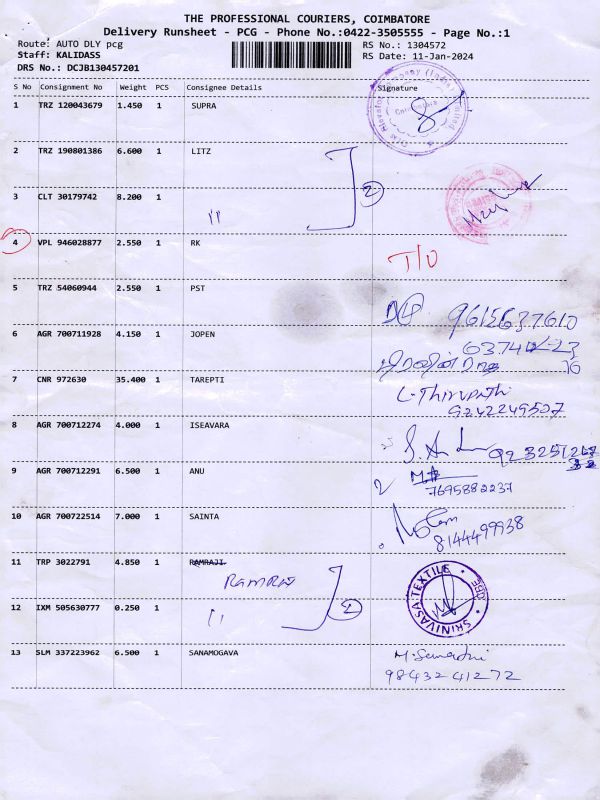 THE PROFESSIONAL COURIERS, COIMBATORE
Delivery Runsheet - PCG - Phone No.:0422-3505555 - Page No.:1
Route: AUTO DLY pcg
RS No.: 1304572
Staff: KALIDASS
RS Date: 11-Jan-2024
DRS No.: DCJB130457201
S No Consignment No Weight PCS Consignee Details Signature
1 TRZ 120043679 1.450 1 SUPRA
2 TRZ 190801386 6.600 1 LITZ
3 CLT 30179742 8.200 1 " 2
4 VPL 946028877 2.550 1 RK T/O
5 TRZ 54060944 2.550 1 PST 9615637610
6 AGR 700711928 4.150 1 JOPEN
7 CNR 972630 35.400 1 TAREPTI L.Thirupathi
9242249507
8 AGR 700712274 4.000 1 ISEAVARA
9 AGR 700712291 6.500 1 ANU 2
7695882237
10 AGR 700722514 7.000 1 SAINTA
8144499938
11 TRP 3022791 4.850 1 RAMRAJI
RAMRAJ
SRINIVASA TEXTILE CBE
12 IXM 505630777 0.250 1 " 2
13 SLM 337223962 6.500 1 SANAMOGAVA
98432 41272